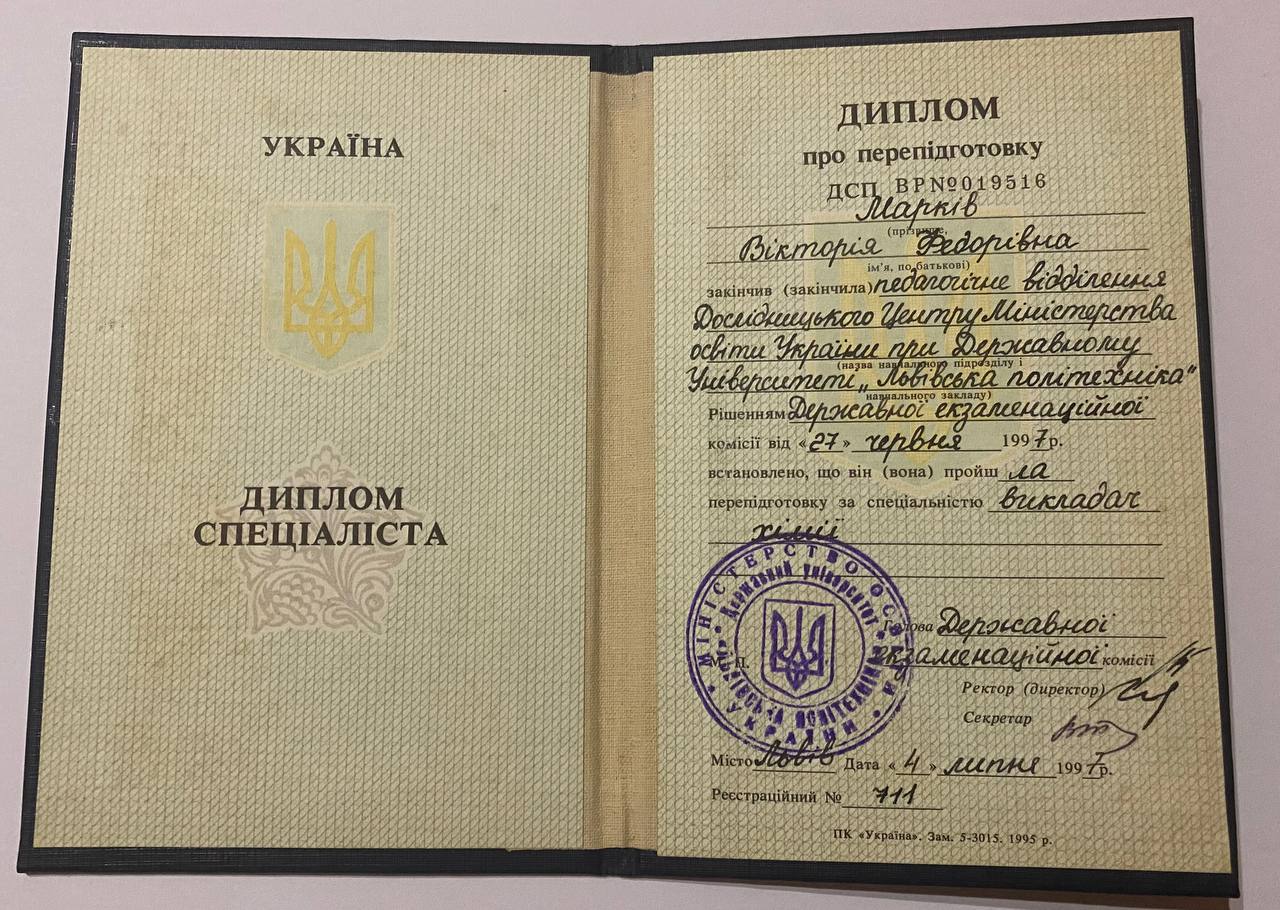 УКРАЇНА
ДИПЛОМ
СПЕЦІАЛІСТА
ДИПЛОМ
про перепідготовку
ДСП ВР№019516
Марків
(прізвище,
Вікторія Федорівна
ім'я, по батькові)
закінчив (закінчила) педагогічне відділення
Дослідницького Центру Міністерства
освіти України при Державному
(назва навчального підрозділу і
Університеті „Львівська політехніка"
навчального закладу)
Рішенням Державної екзаменаційної
комісії від «27» червня 1997р.
встановлено, що він (вона) пройшла
перепідготовку за спеціальністю викладач
хімії
МІНІСТЕРСТВО ОСВІТИ УКРАЇНИ
Державний університет
«Львівська політехніка»
М. П.
Голова Державної
екзаменаційної комісії
Ректор (директор)
Секретар
Місто Львів Дата «4» липня 1997р.
Реєстраційний № 711
ПК «Україна». Зам. 5-3015. 1995 р.